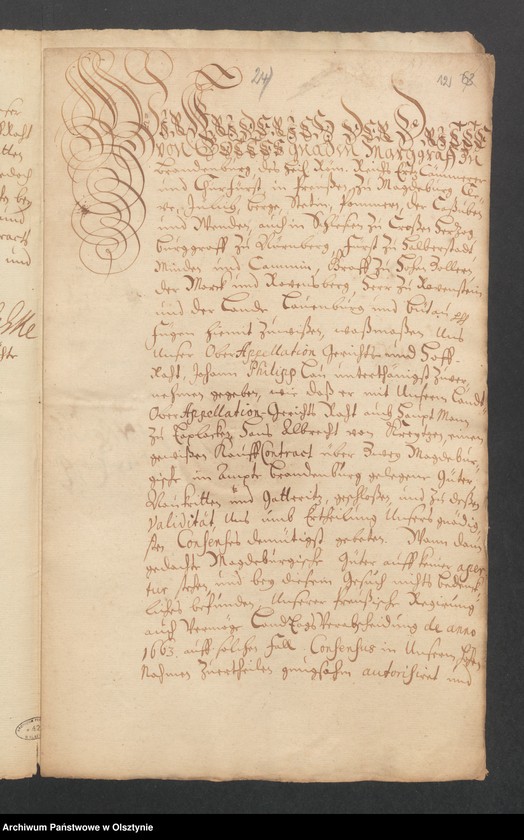 24
121 68
Wir Friderich der Dritte
von Gottes Gnaden Marggraff zu
Brandenburg, des Heil. Röm. Reichs Ertz Cämmerer
und Churfürst, in Preußen, zu Magdeburg, Cle-
ve, Jülich, Berge, Stetin, Pommern, der Caßuben
und Wenden, auch in Schlesien zu Croßen Hertzog
Burggraff zu Nürenberg, Fürst zu Halberstadt
Minden und Cammin, Graff zu Hohen Zollern,
der Marck und Ravensberg, Herr zu Ravenstein,
und der Lande Lauenburg und Bütau pp
Fügen hiemit zuwißen, waßmaßen Uns
Unser OberAppellation Gerichts und Hoff-
Raht, Johann Philipp unterthänigst zuver-
nehmen gegeben, wie daß er mit Unserm Landt
OberAppellation-Gerichts Raht auch Haupt Mann
zu Hans Albrecht von Kreytzen, einen
gewißen Kauff Contract über zwey Magdebur-
gische im Ampte Brandenburg gelegene Güter,
und geschloßen, und zu deßen
Validität, Uns umb Ertheilung Unsers gnädig-
sten Consenses demütigst gebeten. Wann dann
gedachte Magdeburgische Güter auff keinen aper-
tur stehen, und bey diesem Gesuch nichts bedenck-
liches befunden, Unserer Preußische Regierung
auch vermöge LandTags Verabscheidung de anno
1663. auff solchen Fall Consensus in Unserm Höchsten
Nahmen zuertheilen gnugsahm authorisiret und
Archiwum Państwowe w Olsztynie